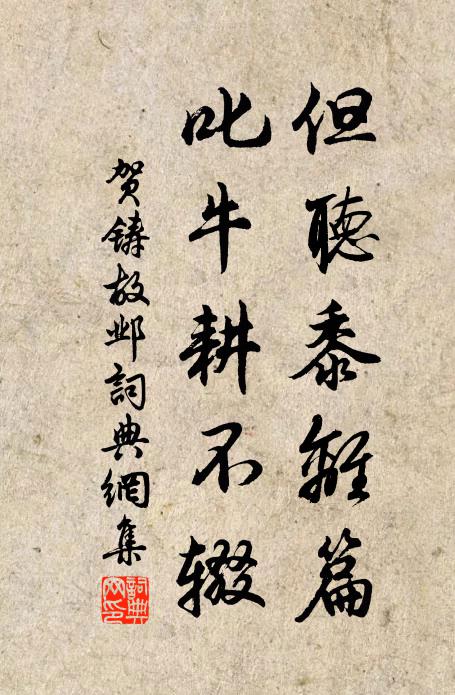 但聽黍離篇
叱牛耕不辍
贺鑄故邺詞典網集
詞典網印